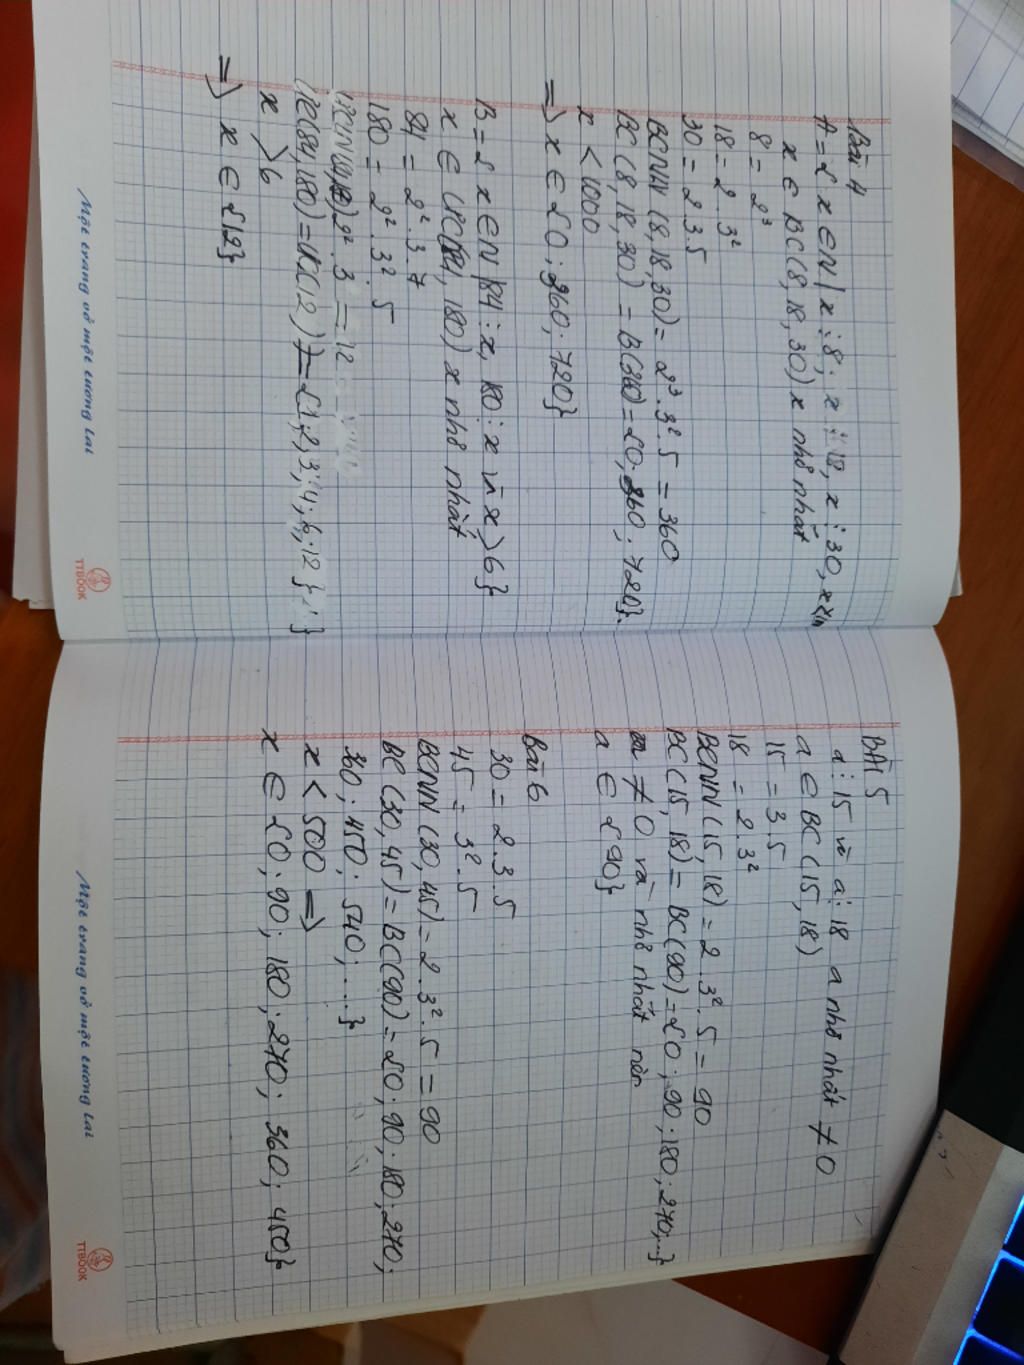 Bài 4
A = { x ∈ N | x ⋮ 8; x ⋮ 18, x ⋮ 30, x <
x ∈ BC(8, 18, 30) x nhỏ nhất
8 = 2³
18 = 2 . 3²
30 = 2.3.5
BCNN (8, 18, 30) = 2³.3².5 = 360
BC (8, 18, 30) = B(360) = {0; 360; 720}.
x < 1000
=> x ∈ {0; 360; 720}
B = { x ∈ N | 84 ⋮ x, 180 ⋮ x và x > 6}
x ∈ ƯC(84, 180) x nhỏ nhất
84 = 2².3.7
180 = 2².3².5
2².3 = 12
ƯC(84, 180) = Ư(12) = {1; 2; 3; 4; 6; 12}
x > 6
=> x ∈ {12}
Một trang vở một tương lai
TTBOOK
BÀI 5
a ⋮ 15 và a ⋮ 18 a nhỏ nhất ≠ 0
a ∈ BC (15, 18)
15 = 3.5
18 = 2.3²
BCNN (15, 18) = 2.3².5 = 90
BC (15, 18) = BC(90) = {0; 90; 180; 270;...}
≠ 0 và nhỏ nhất nên
a ∈ {90}
Bài 6
30 = 2.3.5
45 = 3².5
BCNN (30, 45) = 2.3².5 = 90
BC (30, 45) = BC(90) = {0; 90; 180; 270;
360; 450; 540; ...}
x < 500 =>
x ∈ {0; 90; 180; 270; 360; 450}
Một trang vở một tương lai
TTBOOK